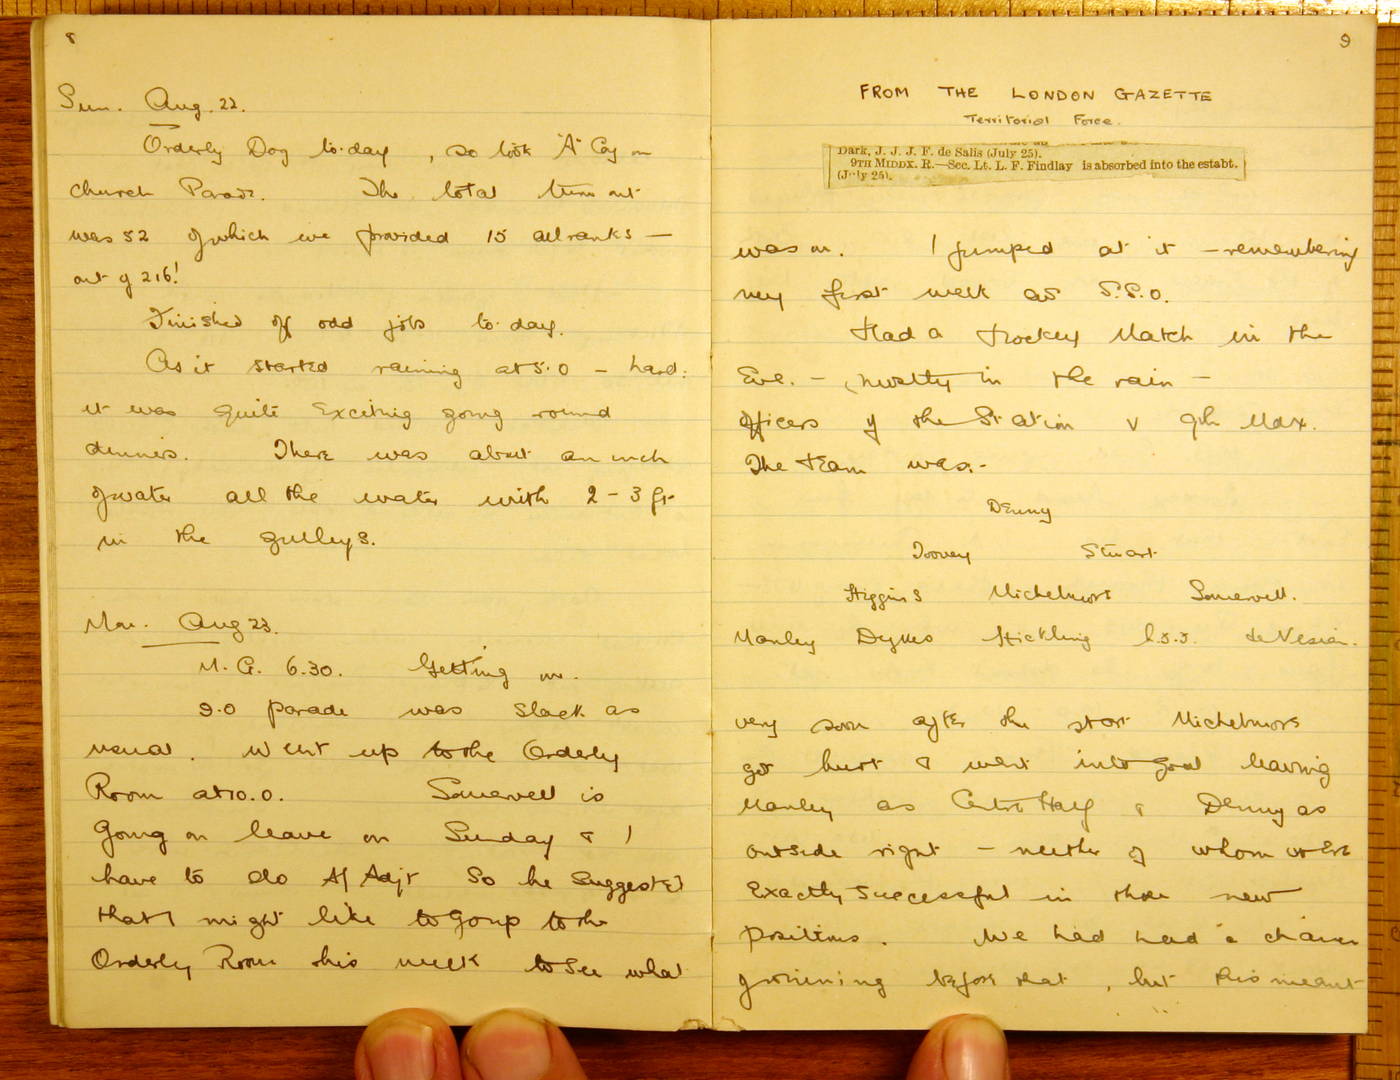 8
Sun. Aug. 22.
Orderly Dog to-day, so took "A" Coy on
church Parade. The total turn out
was 52 of which we provided 15 all ranks —
out of 216!
Finished off odd jobs to-day.
As it started raining at 5.0 – hard:
it was quite exciting going round
dinners. There was about an inch
of water all the water with 2-3 ft
in the gulleys.
Mon. Aug 23.
M.G. 6.30. Getting on.
9.0 parade was slack as
usual. Went up to the Orderly
Room at 10.0. Somervell is
going on leave on Sunday & I
have to do A/Adjt so he suggested
that I might like to go up to the
Orderly Room this week to see what
9
FROM THE LONDON GAZETTE
Territorial Force.
Dark, J. J. J. F. de Salis (July 25).
9TH MIDDX. R.—Sec. Lt. L. F. Findlay is absorbed into the estabt.
(July 25).
was on. I jumped at it – remembering
my first week as S.S.O.
Had a Hockey Match in the
Eve. – mostly in the rain –
Officers of the Station v 9th Mdx.
The team was:-
Denny
Toovey Stuart
Higgins Michelmore Somervell.
Manley Dykes Stickling de Vesian.
very soon after the start Michelmore
got hurt & went into goal leaving
Manley as Centre Half & Denny as
outside right – neither of whom were
exactly successful in their new
positions. We had had a chance
of winning before that, but this meant